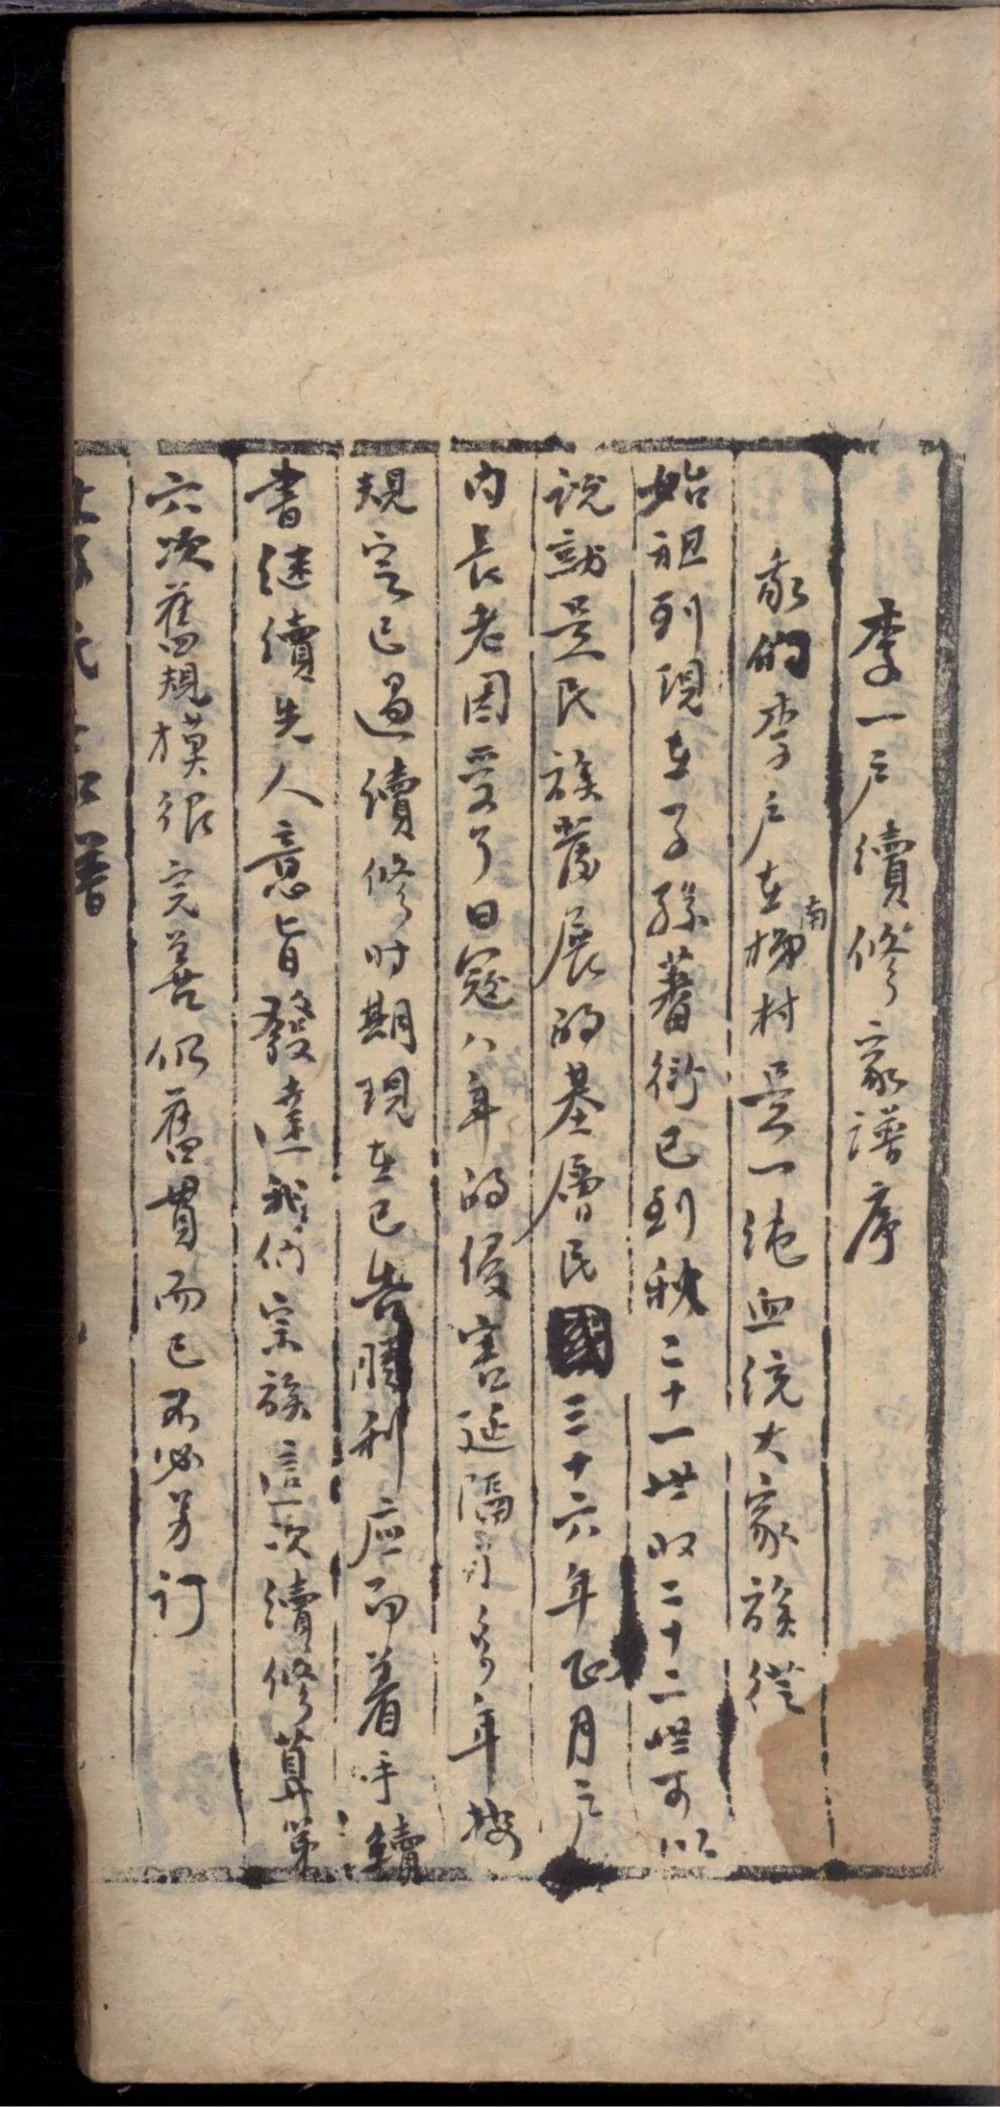 李一户續修家譜序
我的李户在南梯村是一純血統大家族從
始祖到現在子孫蕃衍已到秋二十一世收二十二世可以
說就是民族發展的基層民國三十六年正月户
内長老因受了日寇八年的侵害延隔了多年按
規定已過續修时期現在已告勝利应而着手續
書继續先人意旨發達我们宗族這次續修算第
六次舊規模很完善仍舊貫而已不必另订